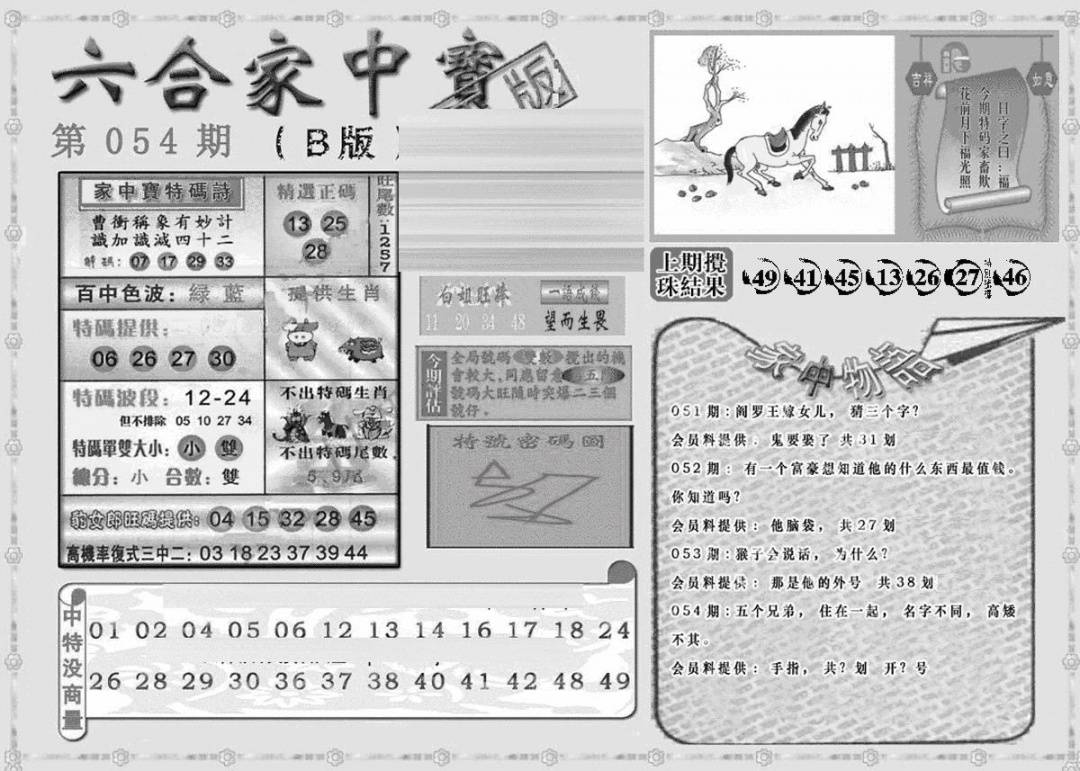 六合家中寶
版
第 054 期 ( B版 )
家中寶特碼詩
曹衝稱象有妙計
識加識減四十二
解碼: 07 17 29 33
精選正碼
13 25
28
旺尾數:1257
百中色波: 綠 藍
特碼提供:
06 26 27 30
提供生肖
特碼波段: 12-24
但不排除 05 10 27 34
特碼單雙大小: 小 雙
總分: 小 合數: 雙
不出特碼生肖
不出特碼尾數
5、9尾
豹女郎旺碼提供: 04 15 32 28 45
高機率復式三中二: 03 18 23 37 39 44
白姐旺棒
11 20 34 48
一語成讖
望而生畏
今期評估
全局號碼雙數攪出的機
會較大,同應留意五
號碼大旺隨時突爆二三個
號仔。
特號密碼圖
中特没商量
01 02 04 05 06 12 13 14 16 17 18 24
26 28 29 30 36 37 38 40 41 42 48 49
吉祥
如意
一日字之曰:福
今期特码家畜欺
花前月下福光照
上期攪珠結果
49 41 45 13 26 27 特別號碼 46
家中物語
051期:阎罗王嫁女儿, 猜三个字?
会员料提供: 鬼要娶了 共31划
052期: 有一个富豪想知道他的什么东西最值钱。
你知道吗?
会员料提供: 他脑袋, 共27划
053期:猴子会说话, 为什么?
会员料提供: 那是他的外号 共38划
054期:五个兄弟, 住在一起, 名字不同, 高矮
不其。
会员料提供: 手指, 共? 划 开? 号